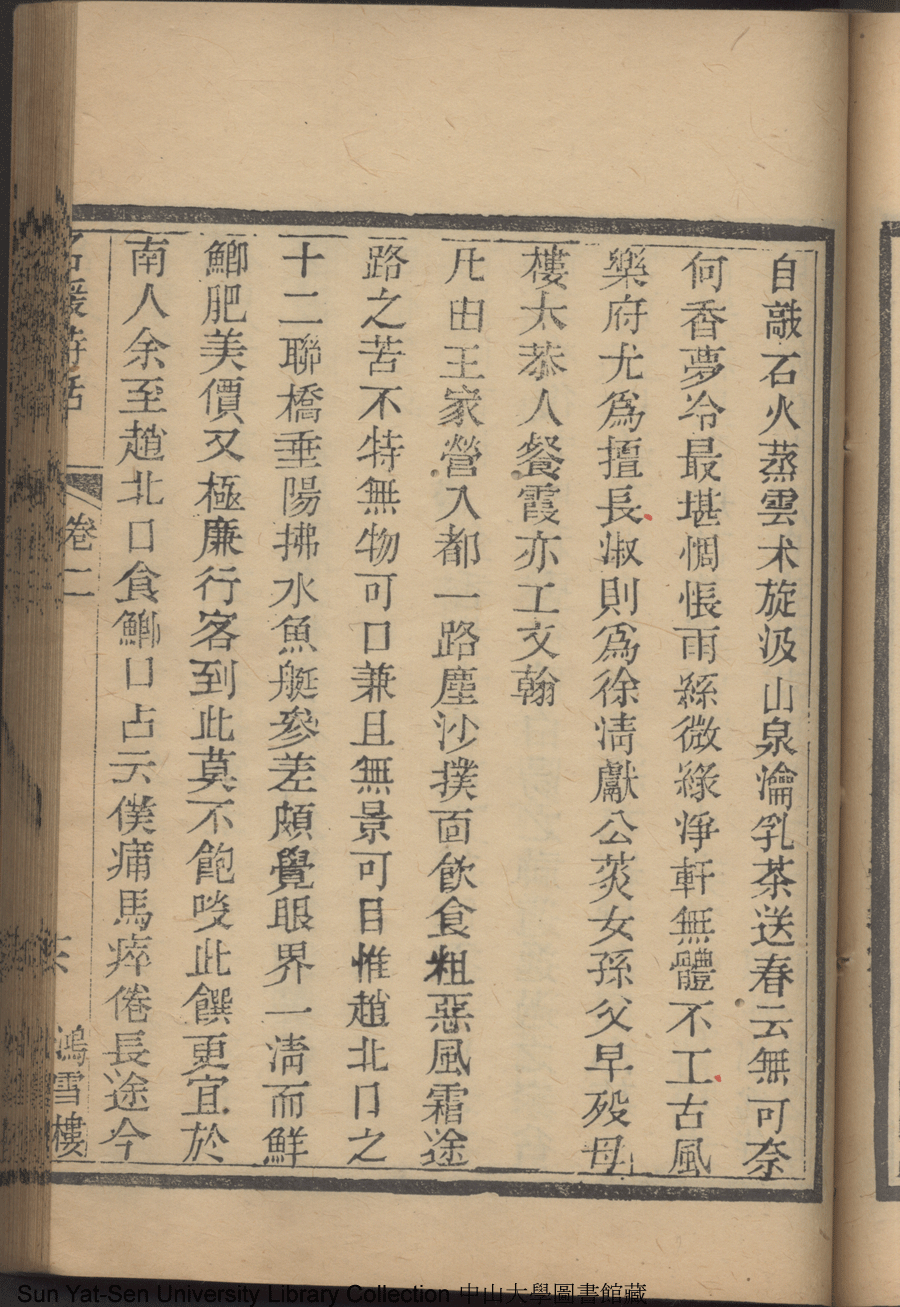 自敲石火蒸雲术旋汲山泉瀹乳茶送春云無可奈
何香夢冷最堪惆悵雨絲微綠凈軒無體不工古風
樂府尤爲擅長淑則爲徐淸獻公莢女孫父早殁母
樓太恭人餐霞亦工文翰
凡由王家營入都一路塵沙撲面飮食粗惡風霜途
路之苦不特無物可口兼且無景可目惟趙北口之
十二聯橋垂陽拂水魚艇參差頗覺眼界一淸而鮮
鯽肥美價又極廉行客到此莫不飽啖此饌更宜於
南人余至趙北口食鯽口占云僕痡馬瘁倦長途今
名媛詩話
卷二
六
鴻雪樓
Sun Yat-Sen University Library Collection 中山大學圖書館藏